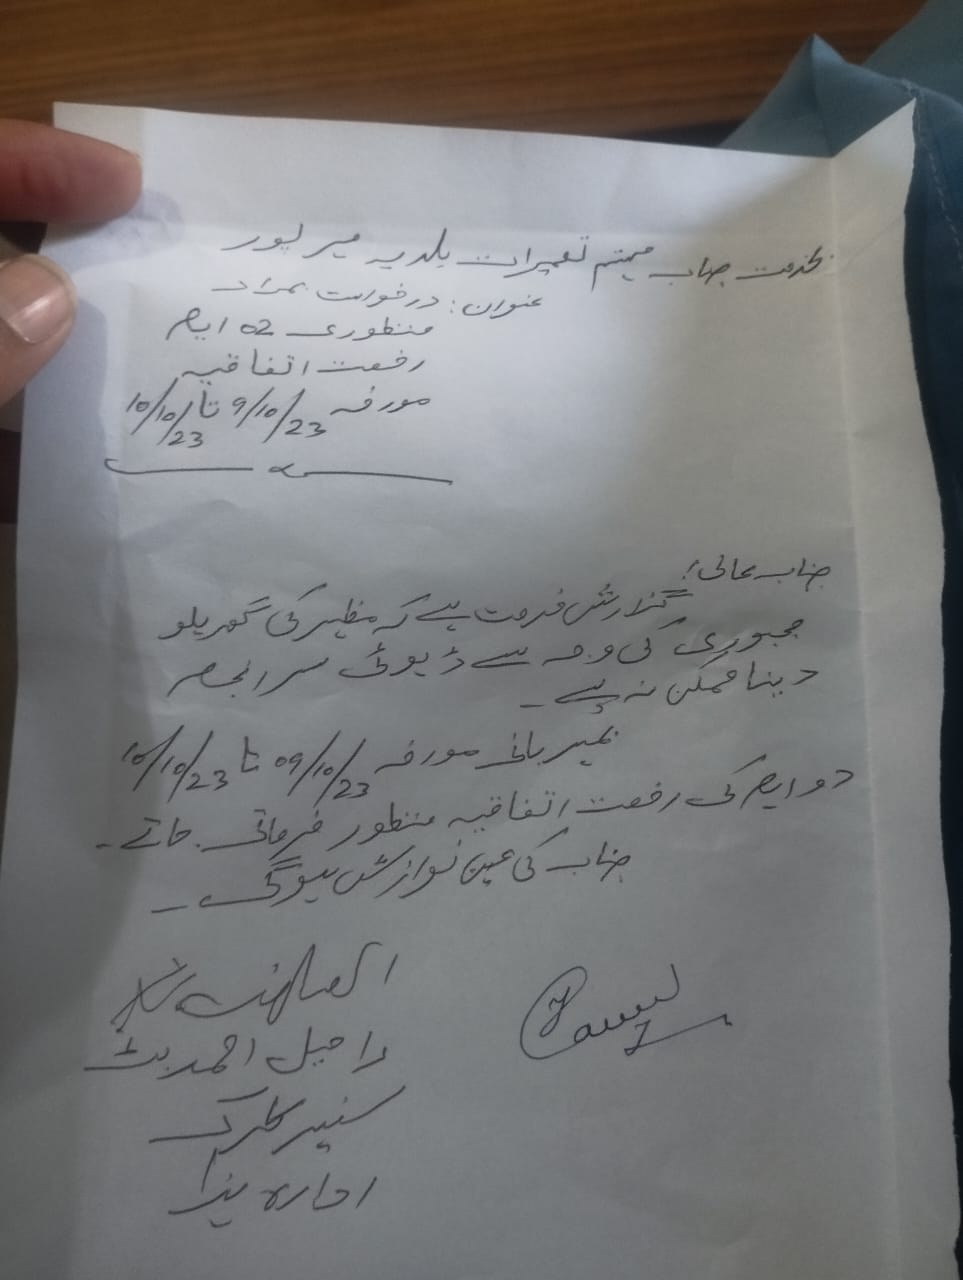 بخدمت جناب مہتمم تعمیرات بلدیہ میرپور
عنوان: درخواست بمراد
منظوری 02 ایام
رخصت اتفاقیہ
مورخہ 9/10/23 تا 10/10/23
جناب عالی!
گزارش خدمت ہے کہ مظہر کی گھریلو
مجبوری کی وجہ سے ڈیوٹی سرانجام
دینا ممکن نہ ہے۔
بمہربانی مورخہ 09/10/23 تا 10/10/23
دو ایام کی رخصت اتفاقیہ منظور فرمائی جائے۔
جناب کی عین نوازش ہوگی۔
راحیل احمد بٹ
سنیئر کلرک
ادارہ ہذا